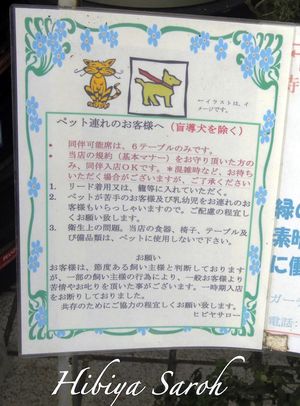 ←イラストは、イメージです。
ペット連れのお客様へ（盲導犬を除く）
* 同伴可能席は、６テーブルのみです。
* 当店の規約（基本マナー）をお守り頂いた方のみ、同伴入店ＯＫです。＊混雑時など、お待ちいただく場合がございますが、ご了承ください
1. リード着用又は、籠等に入れていただく。
2. ペットが苦手のお客様及び乳幼児をお連れのお客様もいらっしゃいますので、ご配慮の程宜しくお願い致します。
3. 衛生上の問題、当店の食器、椅子、テーブル及び備品類は、ペットに使用しないで下さい。
お願い
お客様は、節度ある飼い主様と判断しておりますが、一部の飼い主様の行為により、一般お客様より苦情やお叱りを頂いた事がございます。一時期入店をお断りしておりました。
共存のためにご協力の程宜しくお願い致します。
ヒビヤサロー
電話:
Hibiya Saroh